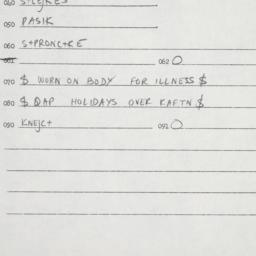 040 S+LEJKES
050 PASIK
060 S+PRONC+KE
061 062 O
070 $ WORN ON BODY FOR ILLNESS $
080 $ QAP HOLIDAYS OVER KAFTN $
090 KNEJC+ 091 O